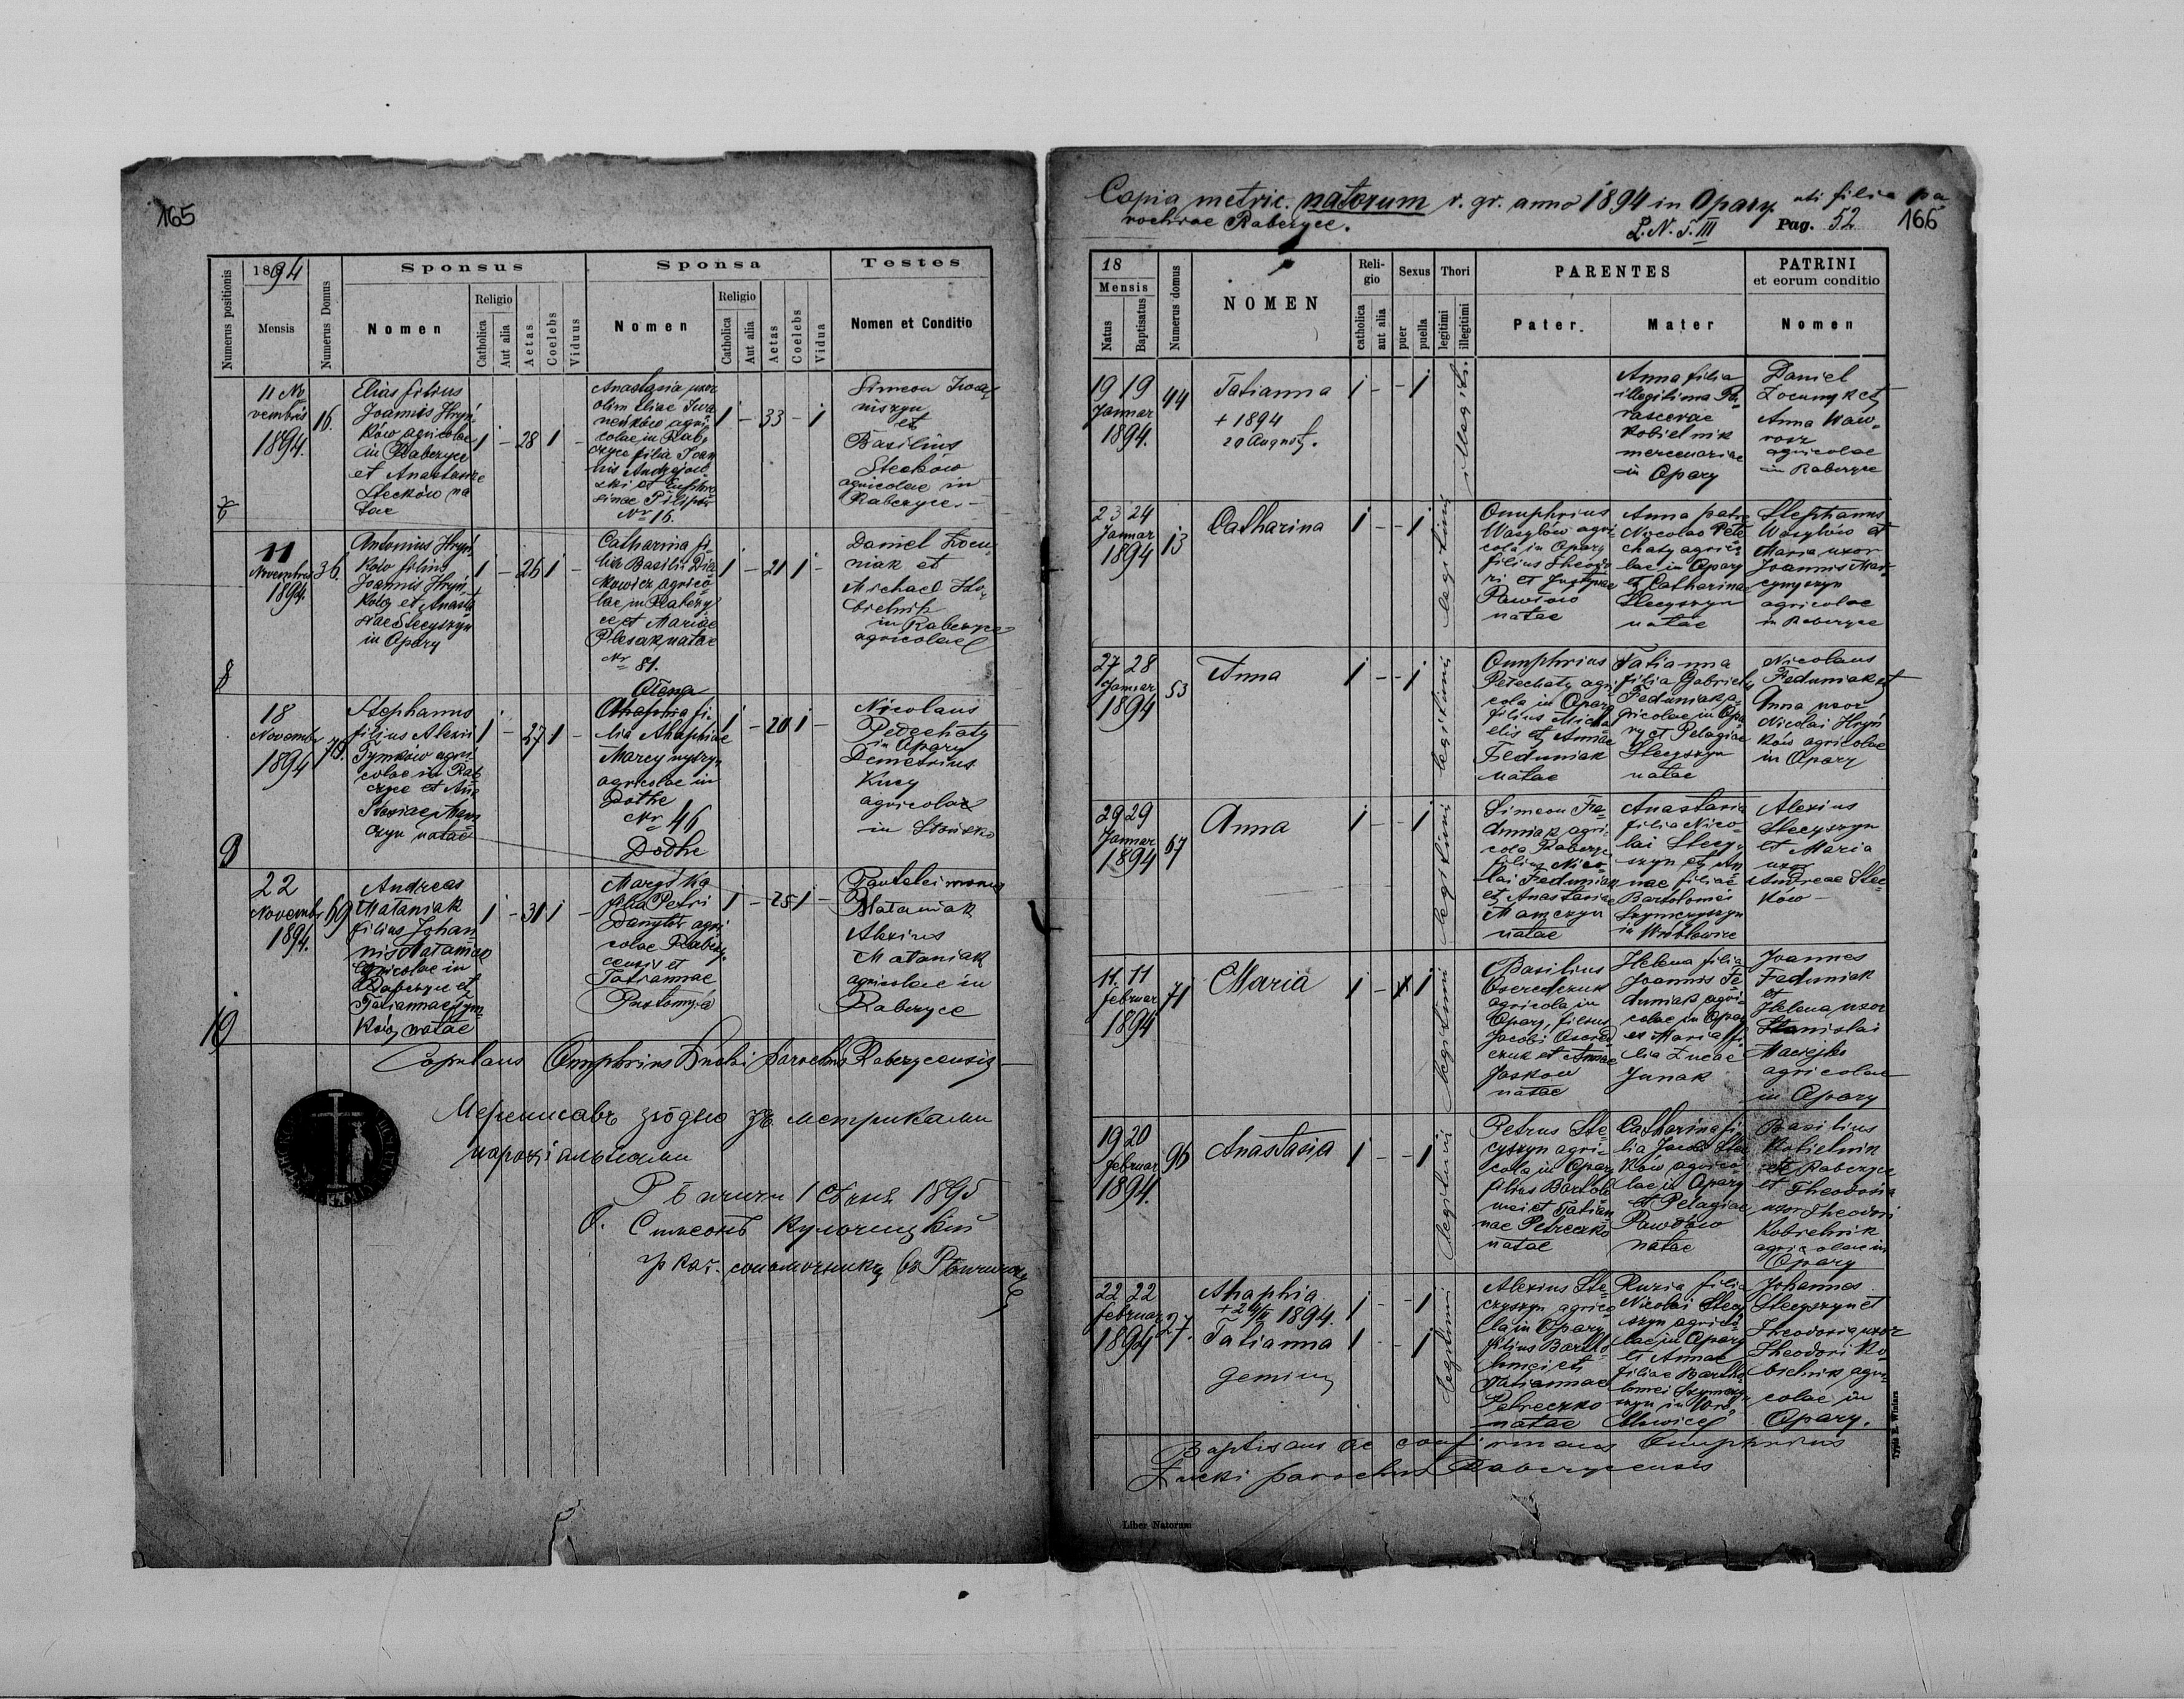 165
Numerus positionis
1894
Mensis
Numerus Domus
Sponsus
Nomen
Religio
Catholica
Aut alia
Aetas
Coelebs
Viduus
Sponsa
Nomen
Religio
Catholica
Aut alia
Aetas
Coelebs
Vidua
Testes
Nomen et Conditio
7
11 No
vembris
1894.
16.
Elias filius
Joannis Hryń
ków agricolae
in Rabczyce
et Anastasiae
Steców na
tae
1 - 28 1 -
Anastasia uxor
olim Eliae Iwa
neńków agri
colae in Rab
czyce filia Joan
nis Andrejow
ski et Euphro
sinae
Nr 16.
1 - 33 - 1
Simeon
et
Basilius
Steców
agricolae in
Rabczyce. -
8
11
Novembris
1894.
36.
Antonius Hryń
ków filius
Joannis Hryń
ków et Anasta
siae Stecyszyn
in Opary
1 - 26 1 -
Catharina fi-
lia Basilii Dia
kowicz agrico
lae in Rabczy
ce et Mariae
Plesak natae
Nr 81.
1 - 21 1 -
Daniel Łocu
niak et
Michael Ko
bielnik
in Rabczyce
agricolae
9
18
Novembr
1894
78.
Stephanus
filius Alexii
Tymków agri
colae in Rab
czyce et Ana
stasiae Mam
czyn natae
1 - 27 1 -
Olena
fi-
lia Ahaphiae
agricolae in
Dołhe
Nr 46
Dołhe
1 - 20 1 -
Nicolaus
Petechaty
in Opary
Demetrius
Kucy
agricolae
in Stońsko
10
22
Novembr
1894.
69
Andreas
Mataniak
filius Johan
nis Mataniak
agricolae in
Rabczyce et
Tatiannae Tym
ków natae
1 - 31 1 -
Maryśka
filia Petri
Danyłów agri
colae Rabczy
censis et
Tatiannae
Pustomyta
1 - 25 1 -
Pantaleimonus
Mataniak
Alexius
Mataniak
agricolae in
Rabczyce
Copulans Onuphrius Łucki parochus Rabczycensis
Переписавъ згôдно зъ метриками
парохіальными
Рѣпчичи 1 Сѣчня 1895
О. Симеонъ
гр кат. сопомочникъ въ Рѣпчичахъ
Copia metric. natorum r. gr. anno 1894 in Opary uti filia pa
rochiae Rabczyce.
L. N. T. III
Pag. 52
166
18
Mensis
Natus
Baptisatus
Numerus domus
NOMEN
Reli-
gio
catholica
aut alia
Sexus
puer
puella
Thori
legitimi
illegitimi
PARENTES
Pater.
Mater
PATRINI
et eorum conditio
Nomen
19 19
Januar
1894.
44
Tatianna
+ 1894
20 Augusti.
1 - - 1
illegitimi.
Anna filia
illegitima Pa
rascevae
Kobielnik
mercenariae
in Opary
Daniel
Łocuniak et
Anna Waw
rosz
agricolae
in Rabczyce
23 24
Januar
1894
13
Catharina
1 - - 1
legitimi
Onuphrius
Wasylów agri-
cola in Opary
filius Theodo
ri et Justynae
Pawłów
natae
Anna patre
Nicolao Pete
chaty agrico
lae in Opary
et Catharinae
Stecyszyn
natae
Stephanus
Wasylów et
Maria uxor
Joannis Mar
cynyszyn
agricolae
in Rabczyce
27 28
Januar
1894
53
Anna
1 - - 1
legitimi
Onuphrius
Petechaty agri
cola in Opary
filius Micha
elis et Annae
Feduniak
natae
Tatianna
filia Gabrielis
Feduniak a-
gricolae in Opa
ry et Pelagiae
Stecyszyn
natae
Nicolaus
Feduniak et
Anna uxor
Nicolai Hryń
ków agricolae
in Opary
29 29
Januar
1894
67
Anna
1 - - 1
legitimi
Simeon Fe-
duniak agri-
cola Rabczyc
filius Nico-
lai Feduniak
et Anastasiae
Mamczyn
natae
Anastasia
filia Nico-
lai Stecy-
szyn et An
nae filiae
Bartolomei
Szymczyszyn
in Wróblowice
Alexius
Stecyszyn
et Maria
uxor
Andreae Stec
ków -
11. 11
Februar
1894
71
Maria
1 - 1
legitimi
Basilius
Oseredczuk
agricola in
Opary, filius
Jacobi Osered
czuk et Annae
Jasków
natae
Helena filia
Joannis Fe
duniak agri-
colae in Opary
et Maria fi-
lia Lucae
Junak
Joannes
Feduniak
et
Helena uxor
Stanislai
Maciejko
agricolae
in Opary
19 20
Februar
1894.
96
Anastasia
1 - - 1
legitimi
Petrus Ste-
cyszyn agri-
cola in Opary
filius Bartolo
mei et Tatian
nae Petreczko
natae
Catharina fi-
lia Jacobi Stec
ków agrico-
lae in Opary
et Pelagiae
Pawłów
natae
Basilius
Kobielnik
Rabczyce
et Theodosia
uxor Theodori
Kobielnik
agricolae in
Opary
22 22
Februar
1894
27.
Ahaphia
+ 24/2 1894.
Tatianna
gemini
1 - - 1
1 - - 1
legitimi
Alexius Ste-
cyszyn agrico
la in Opary
filius Bartho
lomei et
Tatiannae
Petreczko
natae
Ruzia filia
Nicolai Stecy
szyn agrico
lae in Opary
et Annae
filiae Bartho
lomei Szymczy
szyn in Wró
blowice
Johannes
Stecyszyn et
Theodosia uxor
Theodori Ko
bielnik agri-
colae in
Opary.
Baptisans ac confirmans Onuphrius
Łucki parochus Rabczycensis
Liber Natorum
Typis E. Winiarz